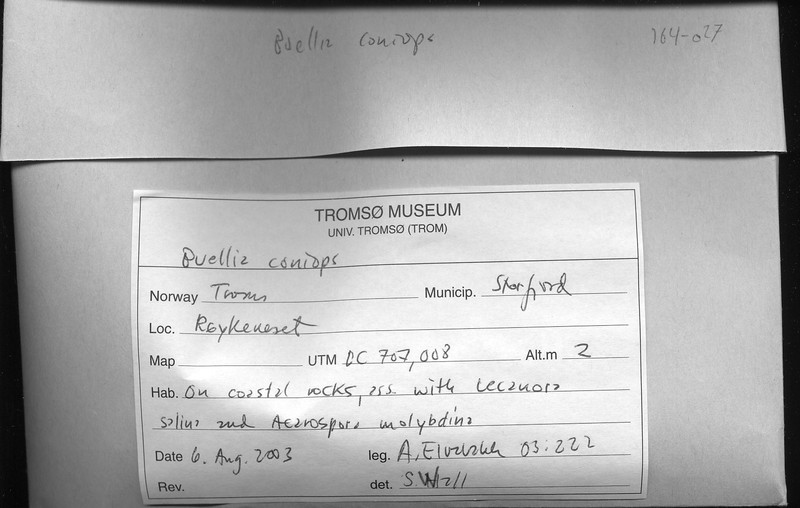 Buellia coniops 164-027
TROMSØ MUSEUM
UNIV. TROMSØ (TROM)
Buellia coniops
Norway Troms Municip. Storfjord
Loc. Røykeneset
Map UTM DC 707,008 Alt.m 2
Hab. On coastal rocks, ass. with Lecanora
salina and Acarospora molybdina
Date 6. Aug. 2003 leg. A. Elvebakk 03:222
Rev. det. S.